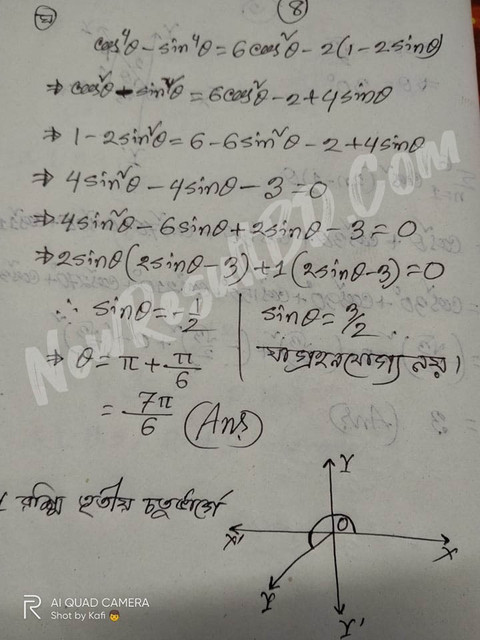 (ঘ) (8)
cos⁴θ - sin⁴θ = 6cos²θ - 2(1 - 2sinθ)
⇒ cos²θ - sin²θ = 6cos²θ - 2 + 4sinθ
⇒ 1 - 2sin²θ = 6 - 6sin²θ - 2 + 4sinθ
⇒ 4sin²θ - 4sinθ - 3 = 0
⇒ 4sin²θ - 6sinθ + 2sinθ - 3 = 0
⇒ 2sinθ(2sinθ - 3) + 1(2sinθ - 3) = 0
∴ sinθ = -1/2 | sinθ = 3/2
⇒ θ = π + π/6 | যা গ্রহনযোগ্য নয়।
= 7π/6 (Ans)
রশ্মি তৃতীয় চতুর্ভাগে
Y
X' O X
P Y'
NewResultBD.Com
AI QUAD CAMERA
Shot by Kafi 👦